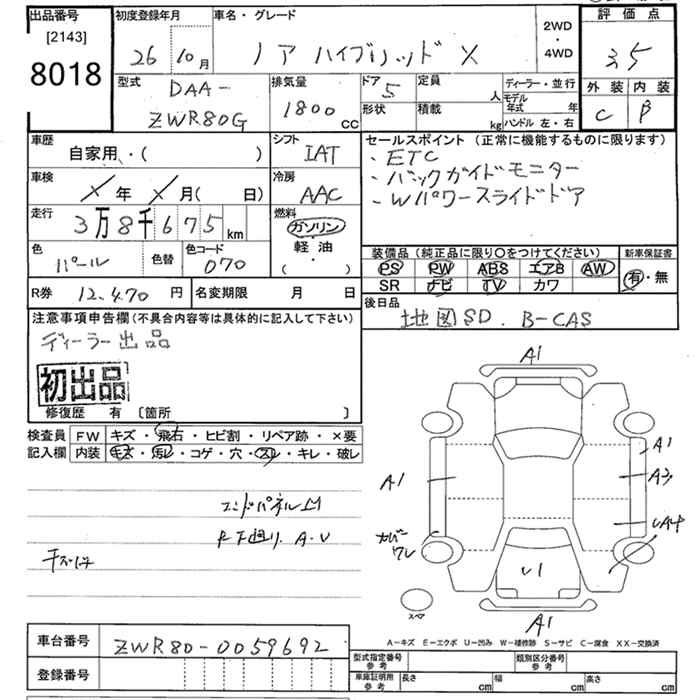 出品番号
[2143]
8018
初度登録年月
26年 10月
車名・グレード
ノア ハイブリッド X
2WD
・
4WD
評価点
3.5
外装 内装
C B
型式
DAA-
ZWR80G
排気量
1800 CC
ドア 5
形状
定員 人
積載 kg
ディーラー・並行
モデル年式 年
ハンドル 左・右
車歴
自家用・( )
シフト
IAT
車検
X年 X月( 日)
冷房
AAC
走行
3万8千675km
燃料
ガソリン
軽油
・
( )
色
パール
色替
色コード
070
R券 12,470円
名変期限 月 日
セールスポイント(正常に機能するものに限ります)
・ETC
・バックガイドモニター
・Wパワースライドドア
装備品(純正品に限り○をつけてください)
新車保証書
PS PW ABS エアB AW
SR ナビ TV カワ
有・無
後日品
地図SD. B-CAS
注意事項申告欄(不具合内容等は具体的に記入して下さい)
ディーラー出品
初出品
修復歴 有 〔箇所 〕
検査員
記入欄
FW キズ・飛石・ヒビ割・リペア跡・×要
内装 キズ・汚レ・コゲ・穴・スレ・キレ・破レ
エンドパネル凹
下廻り. A・U
A1
A1
A1
A3
UA4
カバー
ワレ
U1
スペア
A1
A-キズ E-エクボ U-凹み W-補修跡 S-サビ C-腐食 XX-交換済
車台番号
ZWR80-0059692
登録番号
型式指定番号
参考
類別区分番号
参考
車庫証明用
参考
長さ cm 幅 cm 高さ cm